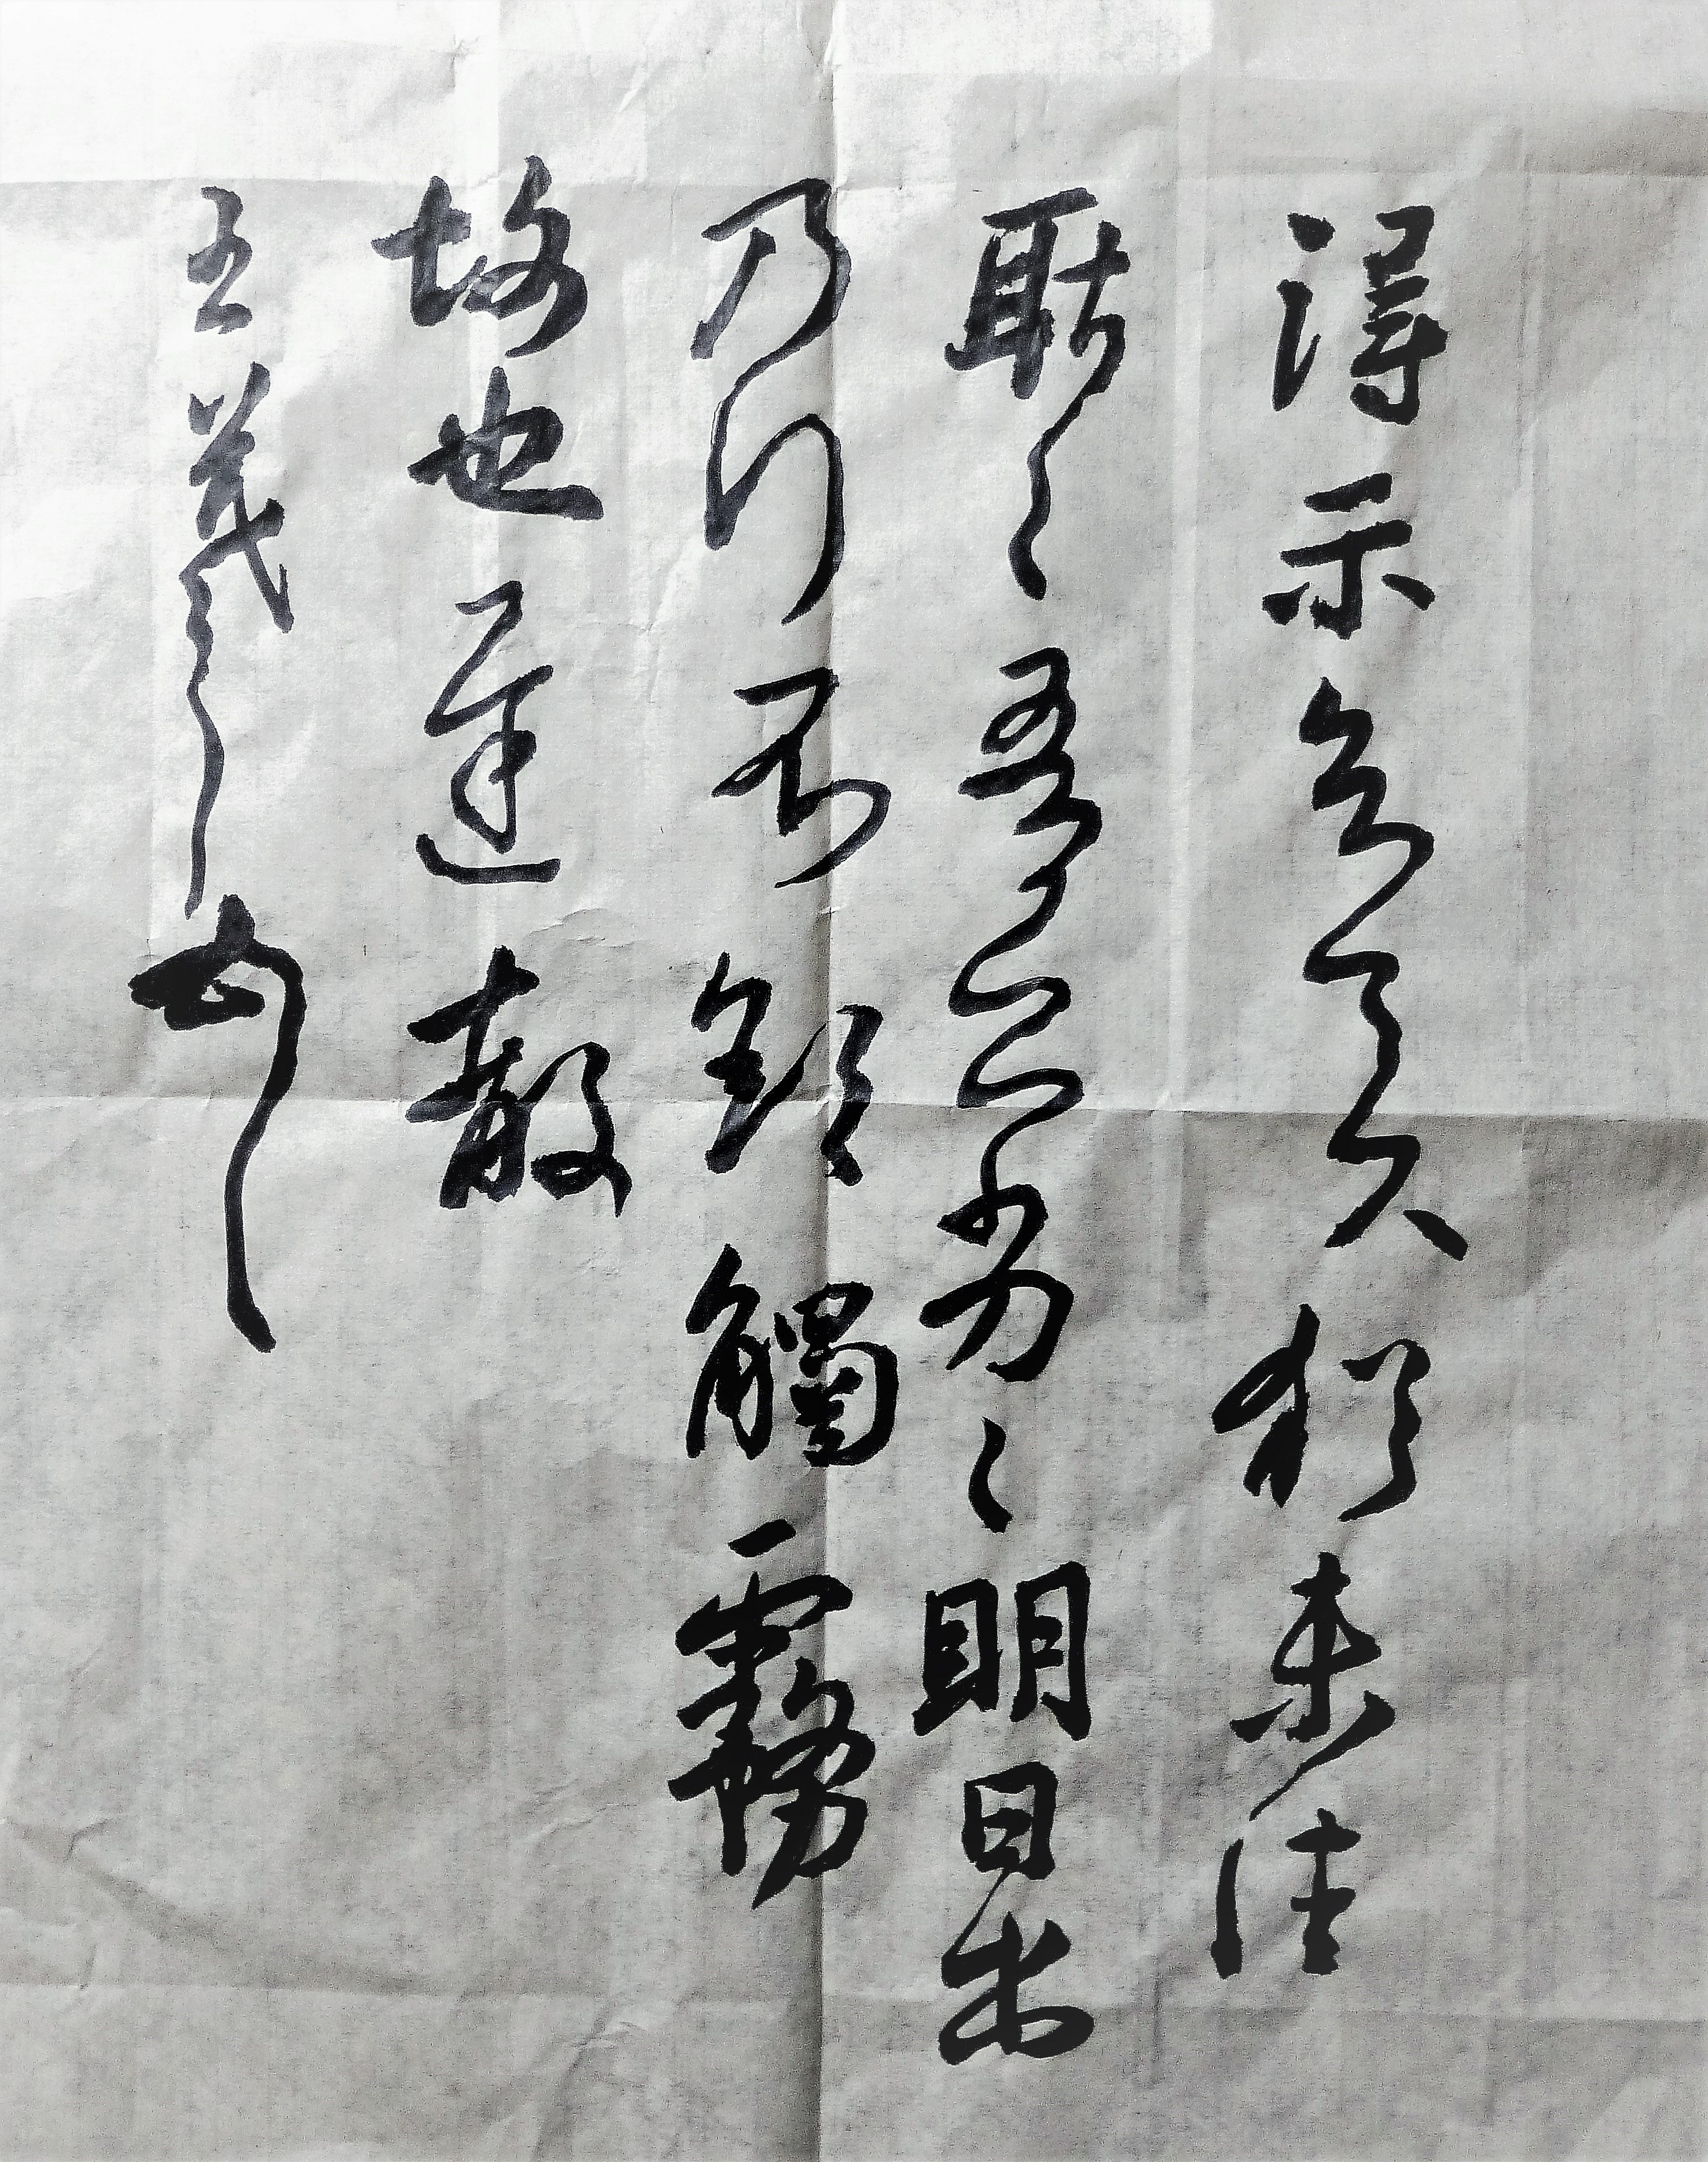 得示知足下猶未佳
耿〻吾亦劣〻明日出
乃行不欲觸霧
故也遲散
王羲之頓首